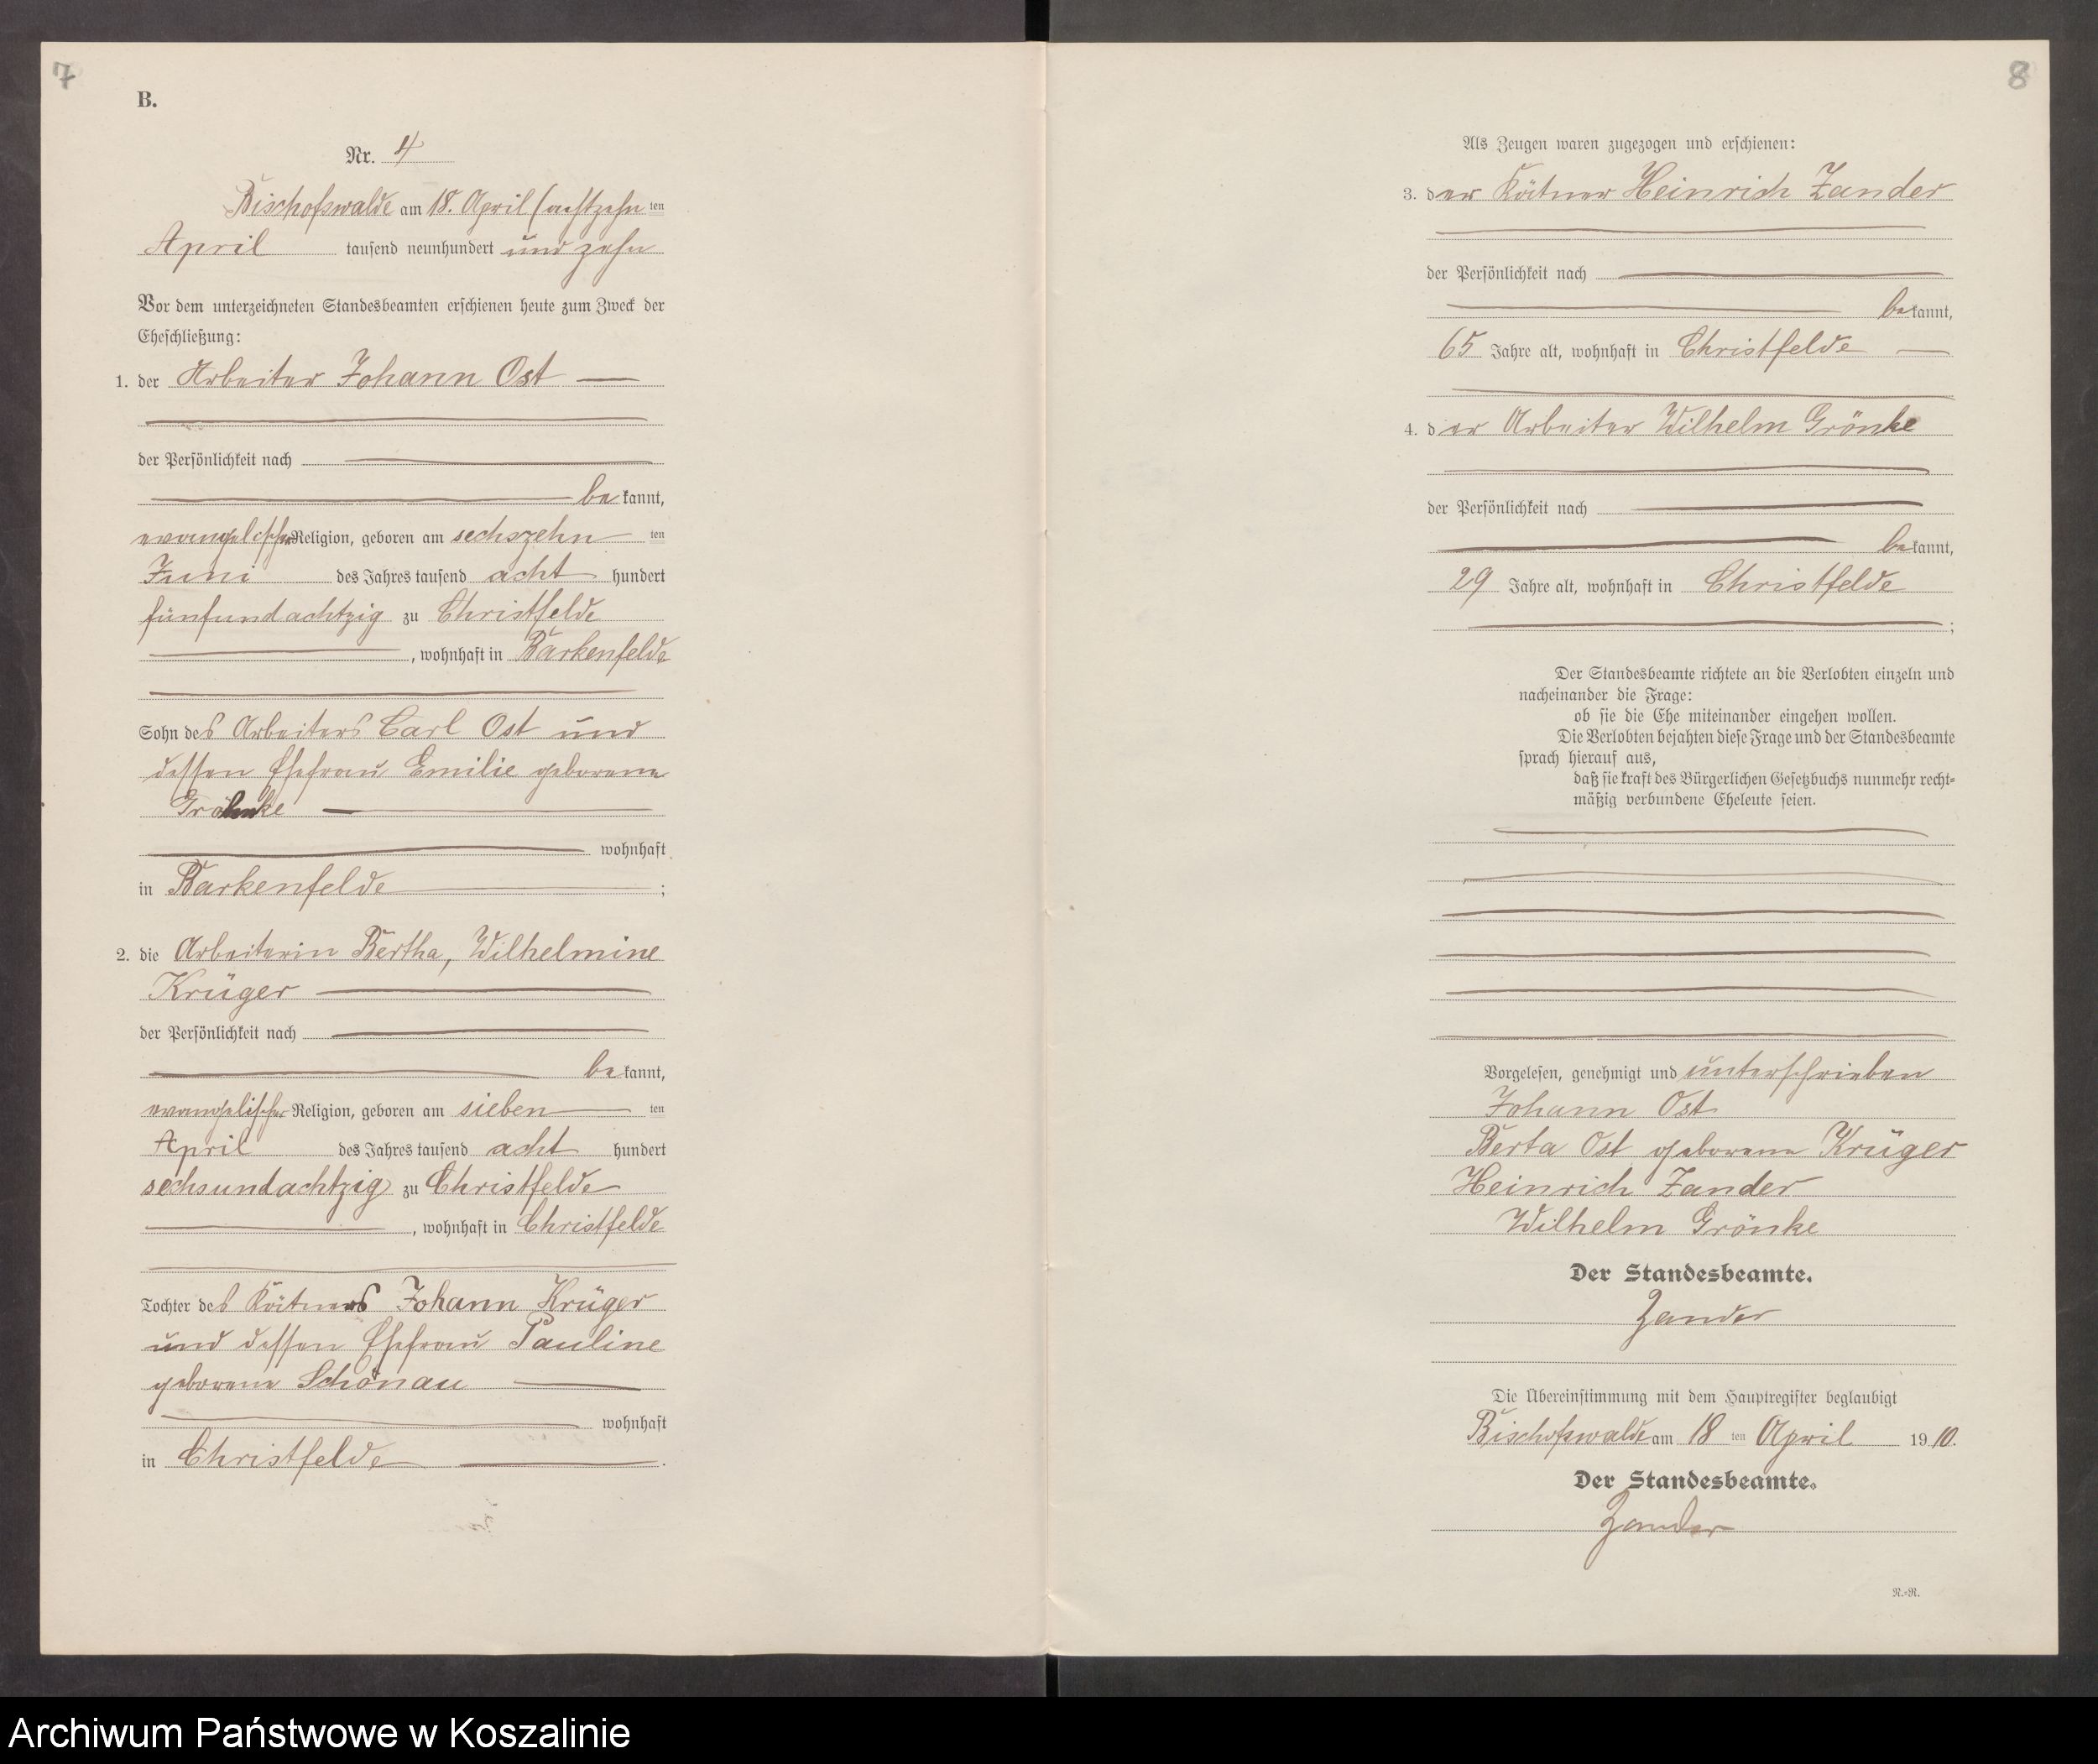 7
B.
Nr. 4
Bischofswalde am 18. April (achtzehn ten
April tausend neunhundert und zehn
Vor dem unterzeichneten Standesbeamten erschienen heute zum Zweck der
Eheschließung:
1. der Arbeiter Johann Ost
der Persönlichkeit nach
be kannt,
evangelischer Religion, geboren am sechszehn ten
Juni des Jahres tausend acht hundert
fünfundachtzig zu Christfelde
, wohnhaft in Barkenfelde
Sohn des Arbeiters Carl Ost und
dessen Ehefrau Emilie geborene
wohnhaft
in Barkenfelde ;
2. die Arbeiterin Bertha, Wilhelmine
Krüger
der Persönlichkeit nach
be kannt,
evangelischer Religion, geboren am sieben ten
April des Jahres tausend acht hundert
sechsundachtzig zu Christfelde
, wohnhaft in Christfelde
Tochter des Kätners Johann Krüger
und dessen Ehefrau Pauline
geborene Schönau
wohnhaft
in Christfelde .
8
Als Zeugen waren zugezogen und erschienen:
3. der Kätner Heinrich Zander
der Persönlichkeit nach
be kannt,
65 Jahre alt, wohnhaft in Christfelde
4. der Arbeiter Wilhelm Grönke
der Persönlichkeit nach
be kannt,
29 Jahre alt, wohnhaft in Christfelde
;
Der Standesbeamte richtete an die Verlobten einzeln und
nacheinander die Frage:
ob sie die Ehe miteinander eingehen wollen.
Die Verlobten bejahten diese Frage und der Standesbeamte
sprach hierauf aus,
daß sie kraft des Bürgerlichen Gesetzbuchs nunmehr recht-
mäßig verbundene Eheleute seien.
Vorgelesen, genehmigt und unterschrieben
Johann Ost
Berta Ost geborene Krüger
Heinrich Zander
Wilhelm Grönke
Der Standesbeamte.
Zander
Die Übereinstimmung mit dem Hauptregister beglaubigt
Bischofswalde am 18 ten April 19 10.
Der Standesbeamte.
Zander
N.-N.
Archiwum Państwowe w Koszalinie